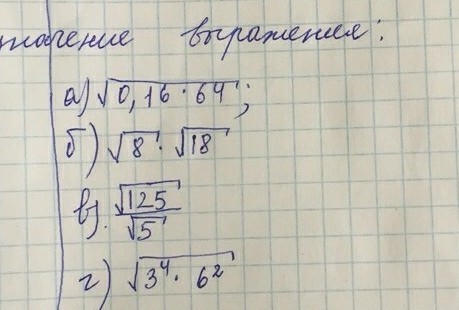 значение выражения:
а) √0,16 · 64;
б) √8 · √18
в). √125 / √5
г) √3⁴ · 6²